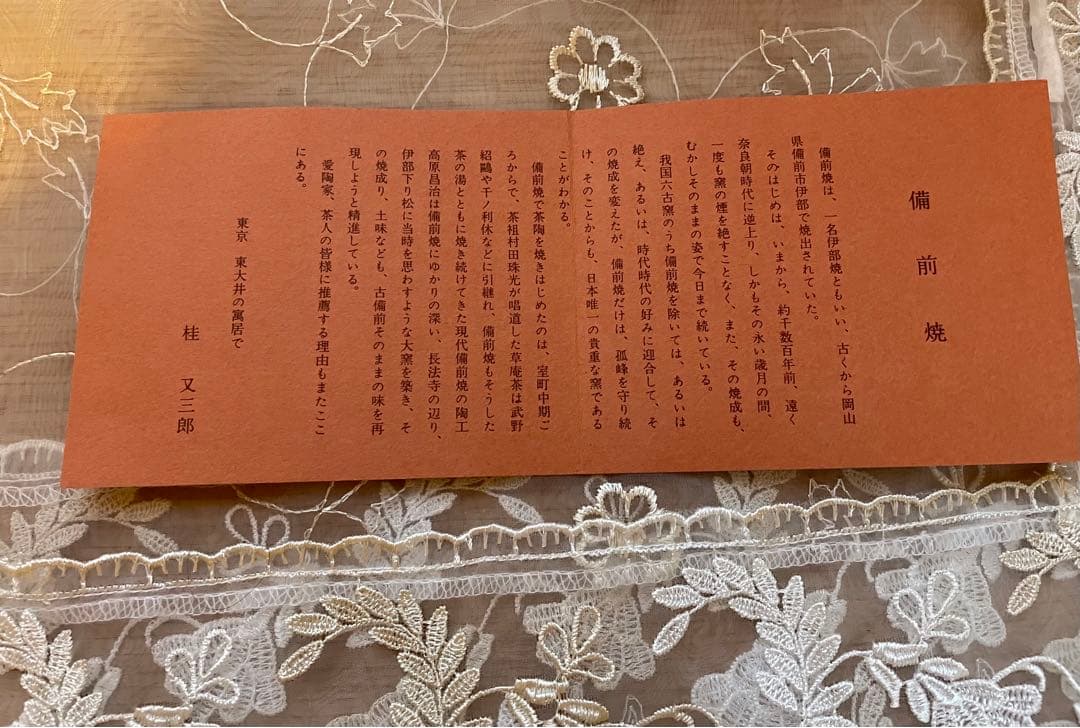 備前焼
備前焼は、一名伊部焼ともいい、古くから岡山
県備前市伊部で焼出されていた。
そのはじめは、いまから、約千数百年前、遠く
奈良朝時代に逆上り、しかもその永い歳月の間、
一度も窯の煙を絶すことなく、また、その焼成も、
むかしそのままの姿で今日まで続いている。
我国六古窯のうち備前焼を除いては、あるいは
絶え、あるいは、時代時代の好みに迎合して、そ
の焼成を変えたが、備前焼だけは、孤峰を守り続
け、そのことからも、日本唯一の貴重な窯である
ことがわかる。
備前焼で茶陶を焼きはじめたのは、室町中期ご
ろからで、茶祖村田珠光が唱道した草庵茶は武野
紹鷗や千ノ利休などに引継れ、備前焼もそうした
茶の湯とともに焼き続けてきた現代備前焼の陶工
高原昌治は備前焼にゆかりの深い、長法寺の辺り、
伊部下り松に当時を思わすような大窯を築き、そ
の焼成り、土味なども、古備前そのままの味を再
現しようと精進している。
愛陶家、茶人の皆様に推薦する理由もまたここ
にある。
東京 東大井の寓居で
桂 又三郎